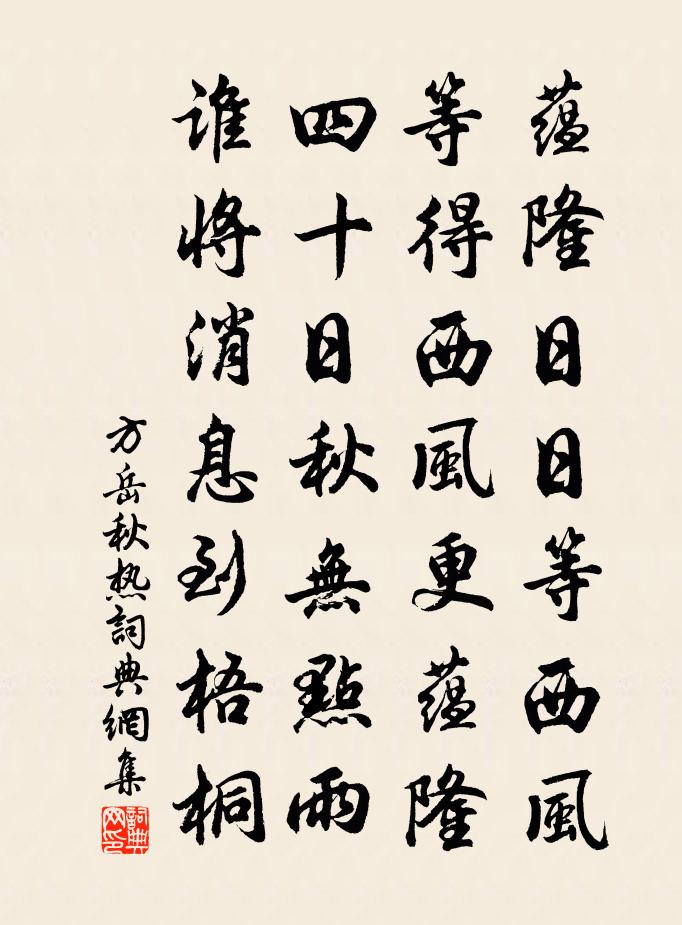 蕴隆日日等西風
等得西風更蕴隆
四十日秋無點雨
谁将消息到梧桐
方岳秋热詞典網集
詞典网印